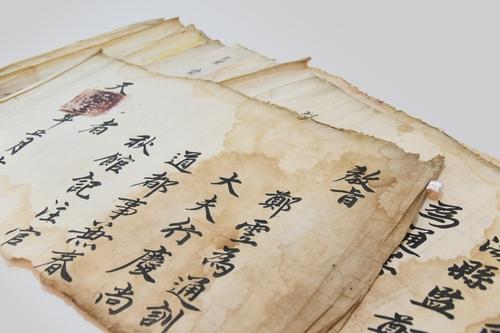 敎旨
鄭雲為通訓
大夫行慶尚
道都事兼春
秋館記注官
者
年
月
縣監
為通